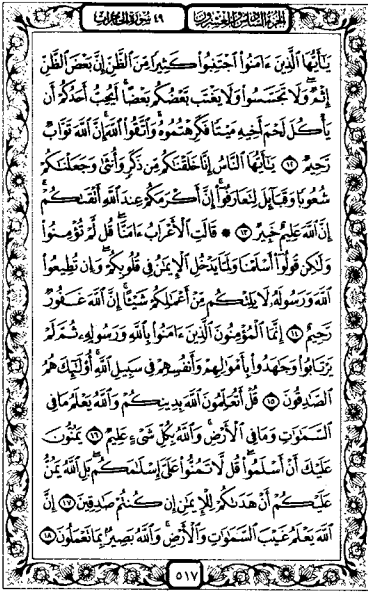 الجزء السادس والعشرون
٤٩ سورة الحجرات
يَٰٓأَيُّهَا ٱلَّذِينَ ءَامَنُوا۟ ٱجْتَنِبُوا۟ كَثِيرًا مِّنَ ٱلظَّنِّ إِنَّ بَعْضَ ٱلظَّنِّ
إِثْمٌ ۖ وَلَا تَجَسَّسُوا۟ وَلَا يَغْتَب بَّعْضُكُم بَعْضًا ۚ أَيُحِبُّ أَحَدُكُمْ أَن
يَأْكُلَ لَحْمَ أَخِيهِ مَيْتًا فَكَرِهْتُمُوهُ ۚ وَٱتَّقُوا۟ ٱللَّهَ ۚ إِنَّ ٱللَّهَ تَوَّابٌ
رَّحِيمٌ ١٢ يَٰٓأَيُّهَا ٱلنَّاسُ إِنَّا خَلَقْنَٰكُم مِّن ذَكَرٍ وَأُنثَىٰ وَجَعَلْنَٰكُمْ
شُعُوبًا وَقَبَآئِلَ لِتَعَارَفُوٓا۟ ۚ إِنَّ أَكْرَمَكُمْ عِندَ ٱللَّهِ أَتْقَىٰكُمْ ۚ
إِنَّ ٱللَّهَ عَلِيمٌ خَبِيرٌ ١٣ ۞ قَالَتِ ٱلْأَعْرَابُ ءَامَنَّا ۖ قُل لَّمْ تُؤْمِنُوا۟
وَلَٰكِن قُولُوٓا۟ أَسْلَمْنَا وَلَمَّا يَدْخُلِ ٱلْإِيمَٰنُ فِى قُلُوبِكُمْ ۖ وَإِن تُطِيعُوا۟
ٱللَّهَ وَرَسُولَهُۥ لَا يَلِتْكُم مِّنْ أَعْمَٰلِكُمْ شَيْـًٔا ۚ إِنَّ ٱللَّهَ غَفُورٌ
رَّحِيمٌ ١٤ إِنَّمَا ٱلْمُؤْمِنُونَ ٱلَّذِينَ ءَامَنُوا۟ بِٱللَّهِ وَرَسُولِهِۦ ثُمَّ لَمْ
يَرْتَابُوا۟ وَجَٰهَدُوا۟ بِأَمْوَٰلِهِمْ وَأَنفُسِهِمْ فِى سَبِيلِ ٱللَّهِ ۚ أُو۟لَٰٓئِكَ هُمُ
ٱلصَّٰدِقُونَ ١٥ قُلْ أَتُعَلِّمُونَ ٱللَّهَ بِدِينِكُمْ وَٱللَّهُ يَعْلَمُ مَا فِى
ٱلسَّمَٰوَٰتِ وَمَا فِى ٱلْأَرْضِ ۚ وَٱللَّهُ بِكُلِّ شَىْءٍ عَلِيمٌ ١٦ يَمُنُّونَ
عَلَيْكَ أَنْ أَسْلَمُوا۟ ۖ قُل لَّا تَمُنُّوا۟ عَلَىَّ إِسْلَٰمَكُم ۖ بَلِ ٱللَّهُ يَمُنُّ
عَلَيْكُمْ أَنْ هَدَىٰكُمْ لِلْإِيمَٰنِ إِن كُنتُمْ صَٰدِقِينَ ١٧ إِنَّ
ٱللَّهَ يَعْلَمُ غَيْبَ ٱلسَّمَٰوَٰتِ وَٱلْأَرْضِ ۚ وَٱللَّهُ بَصِيرٌۢ بِمَا تَعْمَلُونَ ١٨
٥١٧